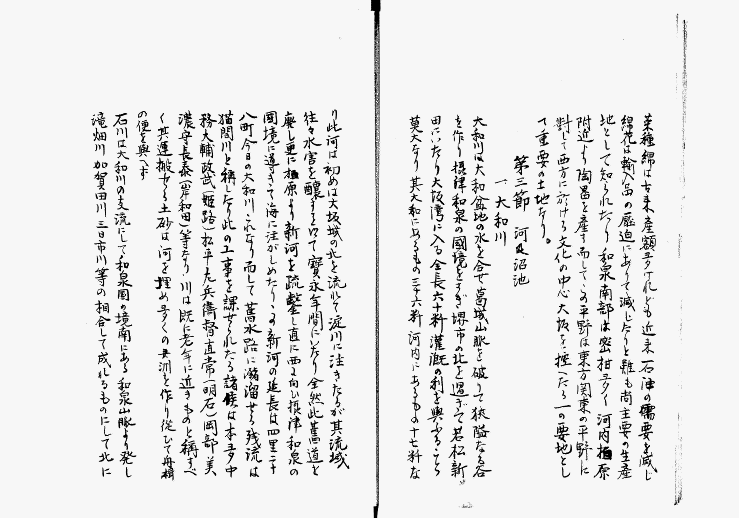 菜種綿は古来産額多けれども近来石油の需要を減じ
綿花は輸入品の圧迫にありて減じたりと雖も尚主要の生産
地として知られたり和泉南部は密柑多く河内柏原
附近より陶器を産す而してこの平野は東方関東の平野に
対して西方に於ける文化の中心大坂を控へたる一の要地とし
て重要の土地なり。
第三節 河及沼池
一 大和川
大和川は大和盆地の水を合せ葛城山脈を破りて狭隘なる谷
を作り摂津和泉の國境をすぎ堺市の北を過ぎて若松新
田にいたり大坂湾に入る全長六十料灌漑の利を與ふること
莫大なり其大和にあるもの三十六料河内にあるもの十七料な
り此河は初めは大坂城の北を流れて淀川に注ぎたるが其流域
往々水害を醸すを以て寶永年間にいたり全然此舊道を
廃し更に柏原より新河を疏鑿し直に西に向ひ摂津和泉の
國境に導きて海に注がしめたりこの新河の延長は四里二十
八町今日の大和川これなり而して舊水路に瀦溜せる残流は
猫間川と稱したり此の工事を課せられたる諸侯は本多中
務大輔政武(姫路)松平左兵衛督直常(明石)岡部美
濃守長泰(岸和田)等なり川は既に老年に近きものと稱すべ
く其運搬せる土砂は河を埋め多くの三角洲を作り従ひて舟楫
の便を與へず
石川は大和川の支流にして和泉國の境南にある和泉山脈より発し
滝畑川加賀田川三日市川等の相合して成れるものにして北に